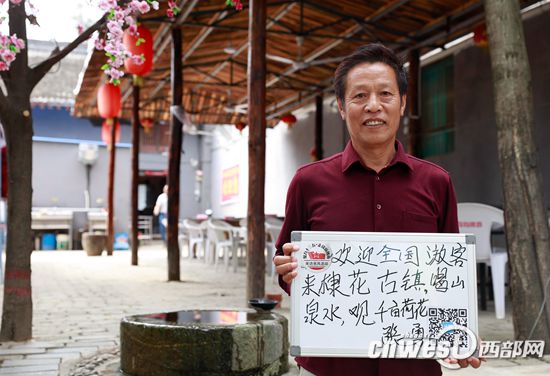 欢迎全国游客
来陕花古镇,喝山
泉水,观千亩荷花
chwest西部网